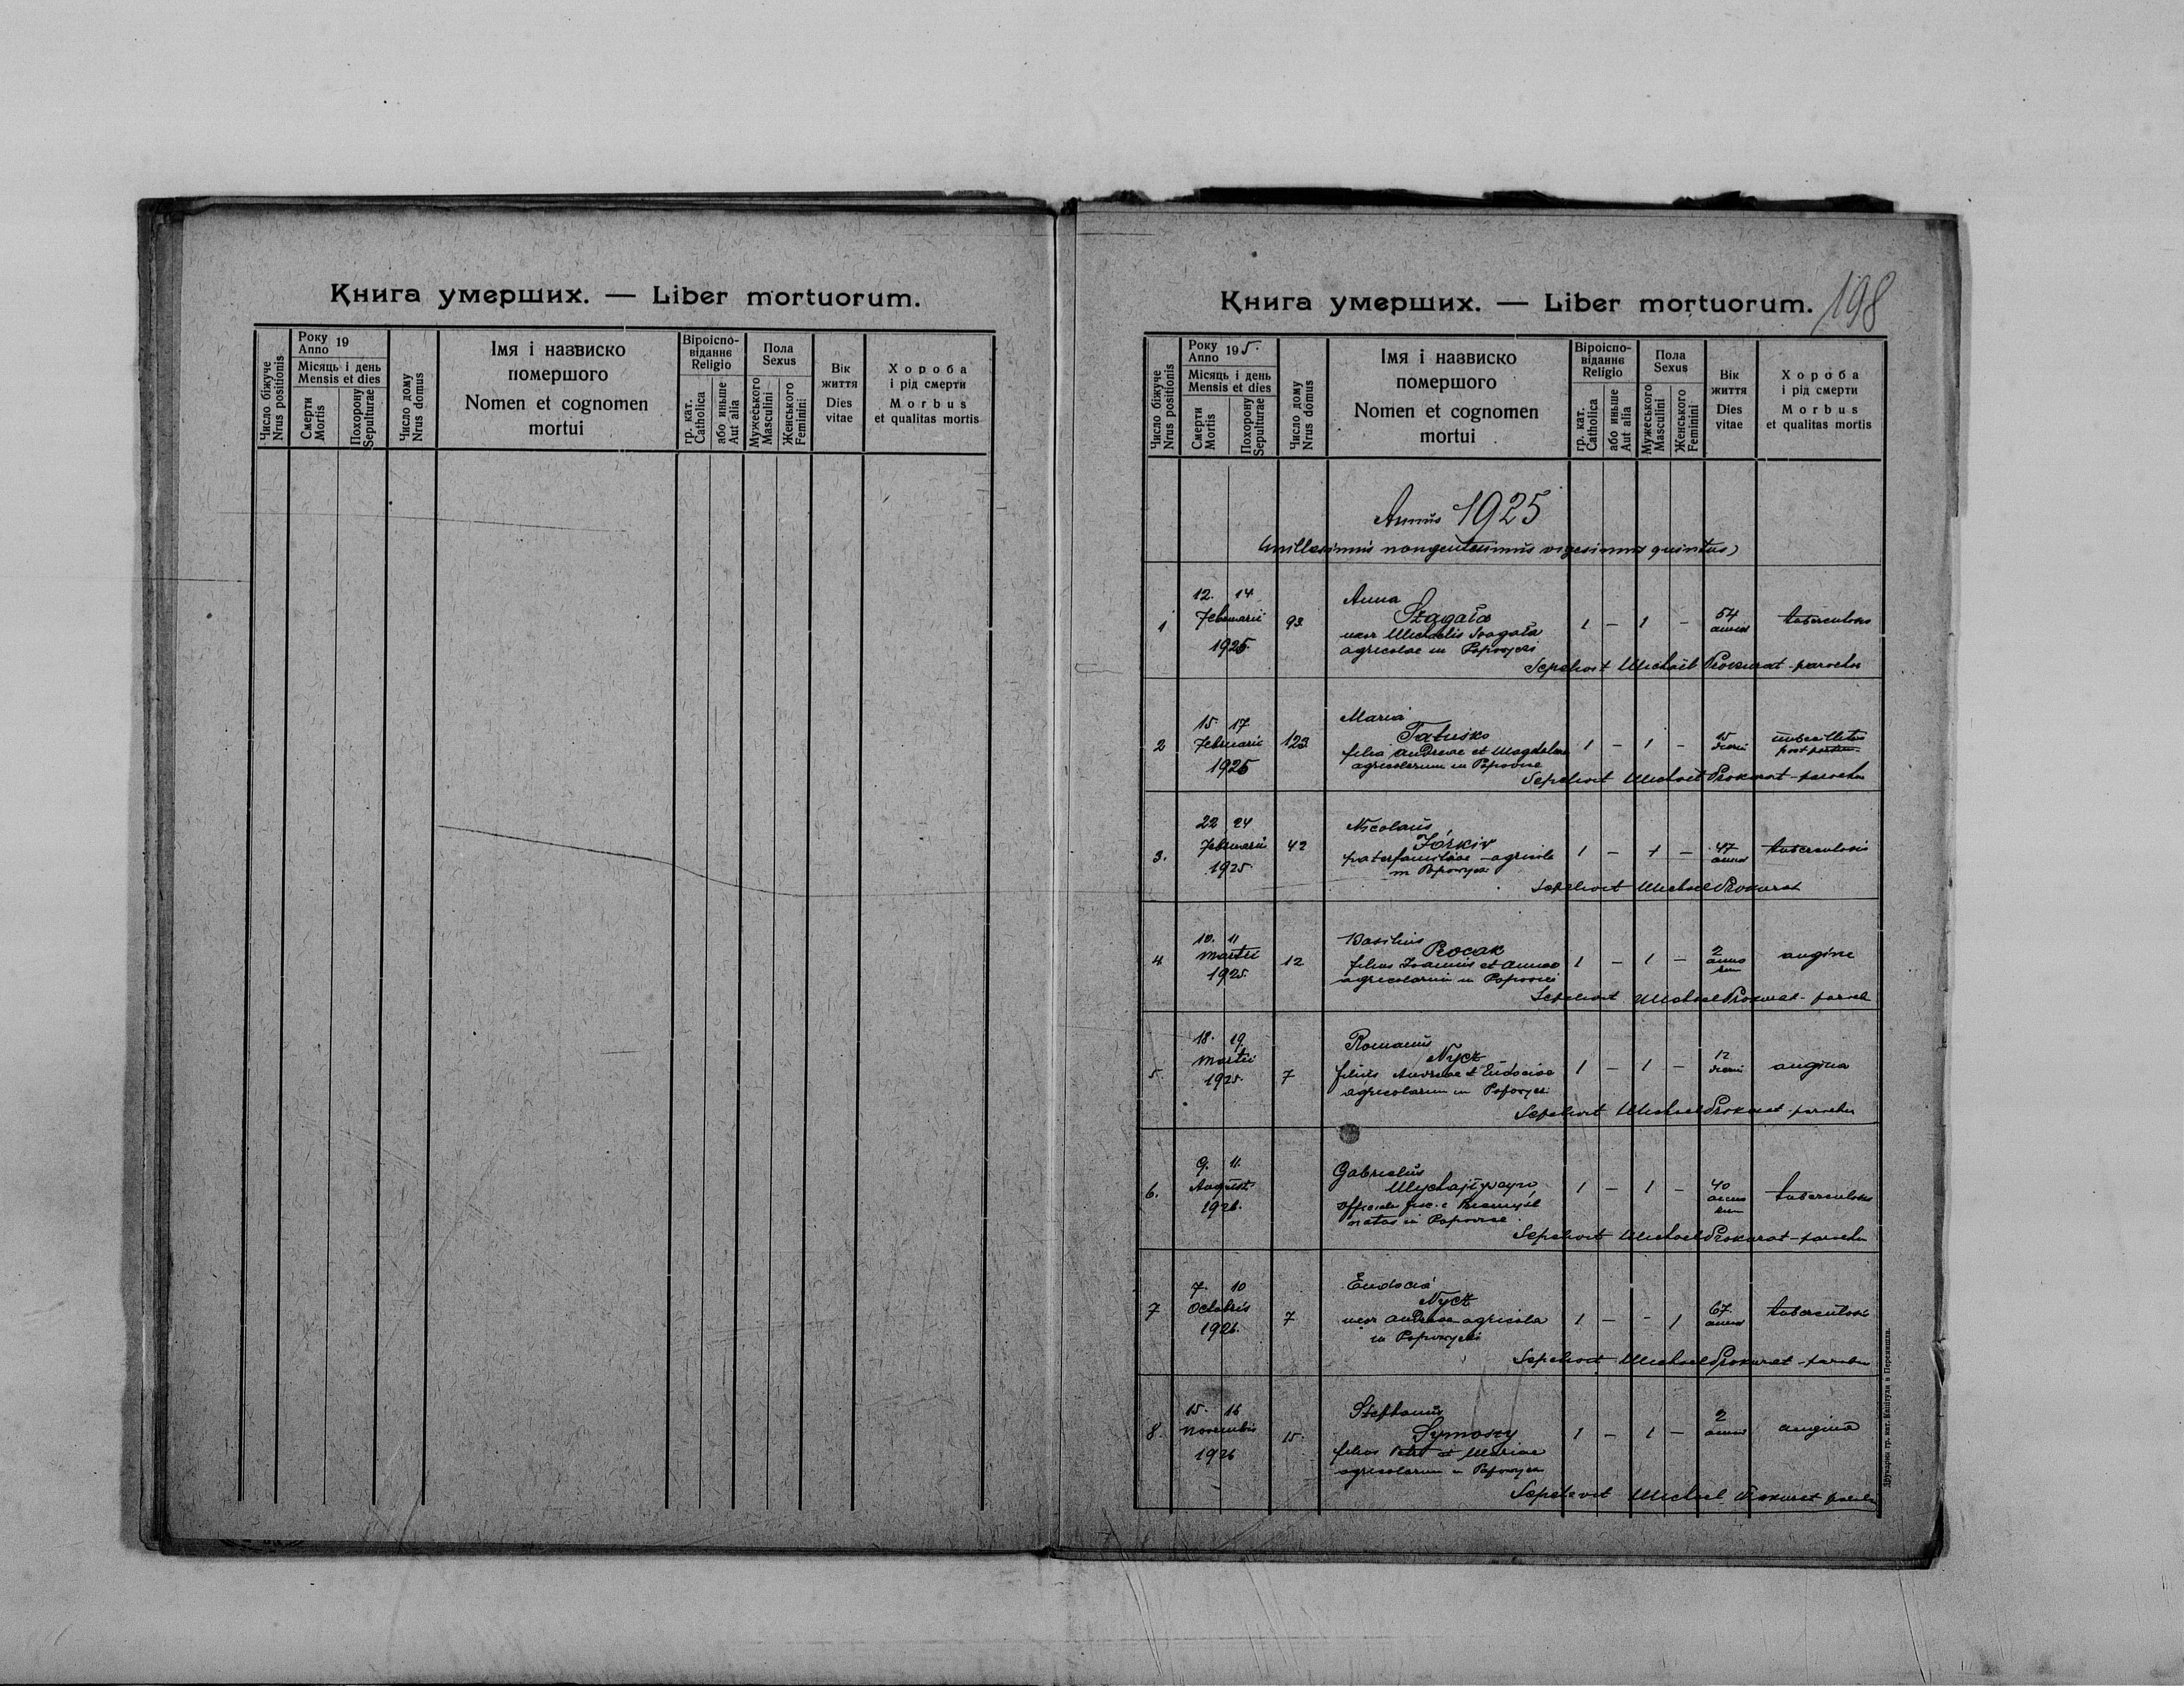 Книга умерших. — Liber mortuorum.
Число біжуче
Nrus positionis
Року
Anno 19
Місяць і день
Mensis et dies
Смерти
Mortis
Похорону
Sepulturae
Число дому
Nrus domus
Імя і назвиско
помершого
Nomen et cognomen
mortui
Віроіспо-
віданнє
Religio
гр. кат.
Catholica
або иньше
Aut alia
Пола
Sexus
Мужеського
Masculini
Женського
Feminini
Вік
життя
Dies
vitae
Хороба
і рід смерти
Morbus
et qualitas mortis
Книга умерших. — Liber mortuorum.
198
Число біжуче
Nrus positionis
Року
Anno 195.
Місяць і день
Mensis et dies
Смерти
Mortis
Похорону
Sepulturae
Число дому
Nrus domus
Імя і назвиско
помершого
Nomen et cognomen
mortui
Віроіспо-
віданнє
Religio
гр. кат.
Catholica
або иньше
Aut alia
Пола
Sexus
Мужеського
Masculini
Женського
Feminini
Вік
життя
Dies
vitae
Хороба
і рід смерти
Morbus
et qualitas mortis
Annus 1925
(millesimus nongentesimus vigesimus quintus)
12. 14
Anna
1 Februarii 93 1 — 1 — 54 tuberculosis
uxor Michaelis
1925
agricolae in
Sepelivit Michaël Prokurat - parochus
15. 17
Maria
2 Februarii 123 Tatusko 1 — 1 — 15
filia Andreae et Magdalenae
1925
agricolarum in
Sepelivit Michaël Prokurat - parochus
22 24
Nicolaus
3. Februarii 42 1 — 1 — 47 tuberculosis
paterfamiliae - agricola
1925.
in
Sepelivit Michael Prokurat
10. 11
Basilius
4 Martii 12 Procak 1 — 1 — 2 angina
filius Ioannis et Annae
1925.
agricolarum in
Sepelivit Michael Prokurat - paroch
18. 19.
Romanus
5. Martii 7 Nycz 1 — 1 — 12 angina
filius Andreae et Eudociae
1925.
agricolarum in
Sepelivit Michael Prokurat - parochus
9. 11.
Gabrielus
6. August 1 — 1 — 40 tuberculosis
1926.
natus in
Sepelivit Michael Prokurat - parochus
7. 10
Eudocia
7 Octobris 7 Nycz 1 — - 1 67 tuberculosis
uxor Andreae agricola
1926.
in
Sepelivit Michael Prokurat - parochus
15. 16
Stephanus
8. Novembris 15. 1 — 1 — 2 angina
filius Petri et Mariae
1926
agricolarum in
Sepelivit Michael Prokurat
Друкарні гр. кат. Капітули в Перемишли.